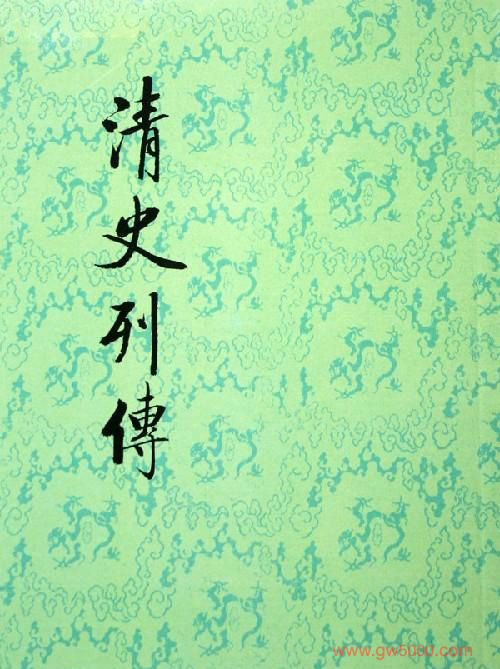 清史列傳
www.gw5030.com